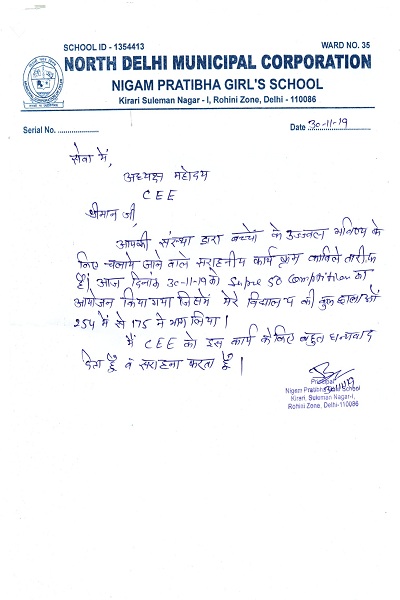 SCHOOL ID - 1354413
WARD NO. 35
NORTH DELHI MUNICIPAL CORPORATION
NIGAM PRATIBHA GIRL'S SCHOOL
Kirari Suleman Nagar - I, Rohini Zone, Delhi - 110086
Serial No. ....................
Date 30-11-19
सेवा में,
अध्यक्ष महोदय
CEE
श्रीमान जी,
आपकी संस्था द्वारा बच्चों के उज्जवल भविष्य के
लिए चलाये जाने वाले सराहनीय कार्य क्रम काबिले तारीफ
है। आज दिनांक 30-11-19 को Supre 50 Compitition का
आयोजन किया गया जिसमें मेरे विद्यालय की कुल छात्राओं
254 में से 175 ने भाग लिया।
मैं CEE को इस कार्य के लिए बहुत धन्यवाद
देता हूँ व सराहना करता हूँ।
Principal
30/11/19
Nigam Pratibha Girl's School
Kirari, Suleman Nagar-I,
Rohini Zone, Delhi-110086